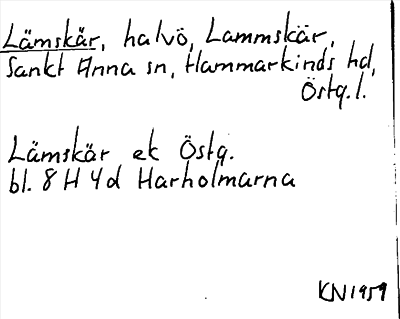 Lämskär, halvö, Lammskär,
Sankt Anna sn, Hammarkinds hd,
Östg.l.
Lämskär ek Östg.
bl. 8 H 4d Harholmarna
KN1959